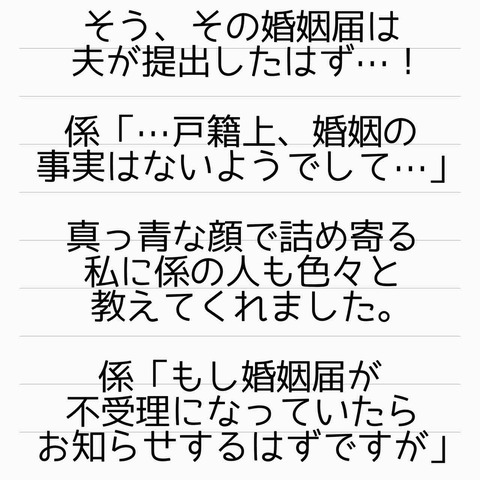 そう、その婚姻届は
夫が提出したはず…！
係「…戸籍上、婚姻の
事実はないようでして…」
真っ青な顔で詰め寄る
私に係の人も色々と
教えてくれました。
係「もし婚姻届が
不受理になっていたら
お知らせするはずですが」